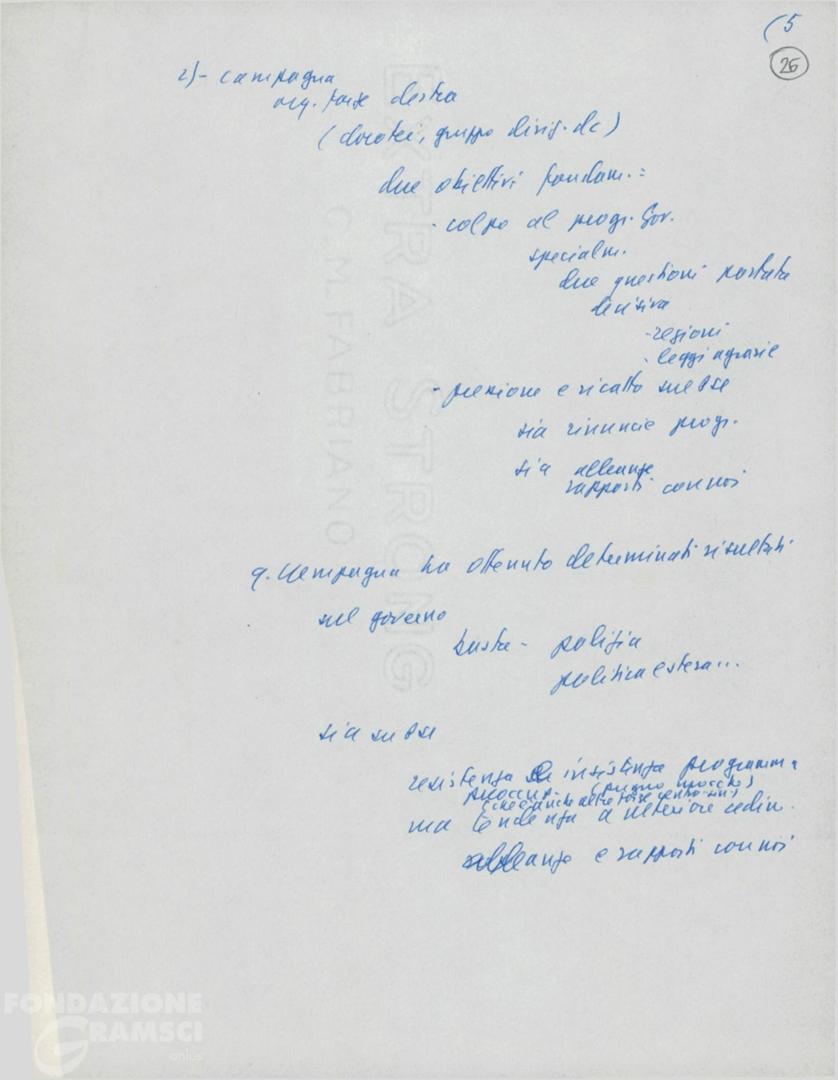 (5
26
2)- campagna
org. forze destra
(dorotei, gruppo dirig. dc)
due obiettivi fondam.:
- colpo al progr. Gov.
specialm.
due questioni portata
decisiva
- regioni
- leggi agrarie
- pressione e ricatto sul Psi
sia rinuncie progr.
sia alleanze
rapporti con noi
q. campagna ha ottenuto determinati risultati
sul governo
polizia
politica estera...
sia su Psi
resistenza insistenza programma
preoccup.
(che c'è anche altre forze
ma tendenza a ulteriore cedim.
alleanze e rapporti con noi
EXTRA STRONG
C. M. FABRIANO
FONDAZIONE
GRAMSCI
onlus